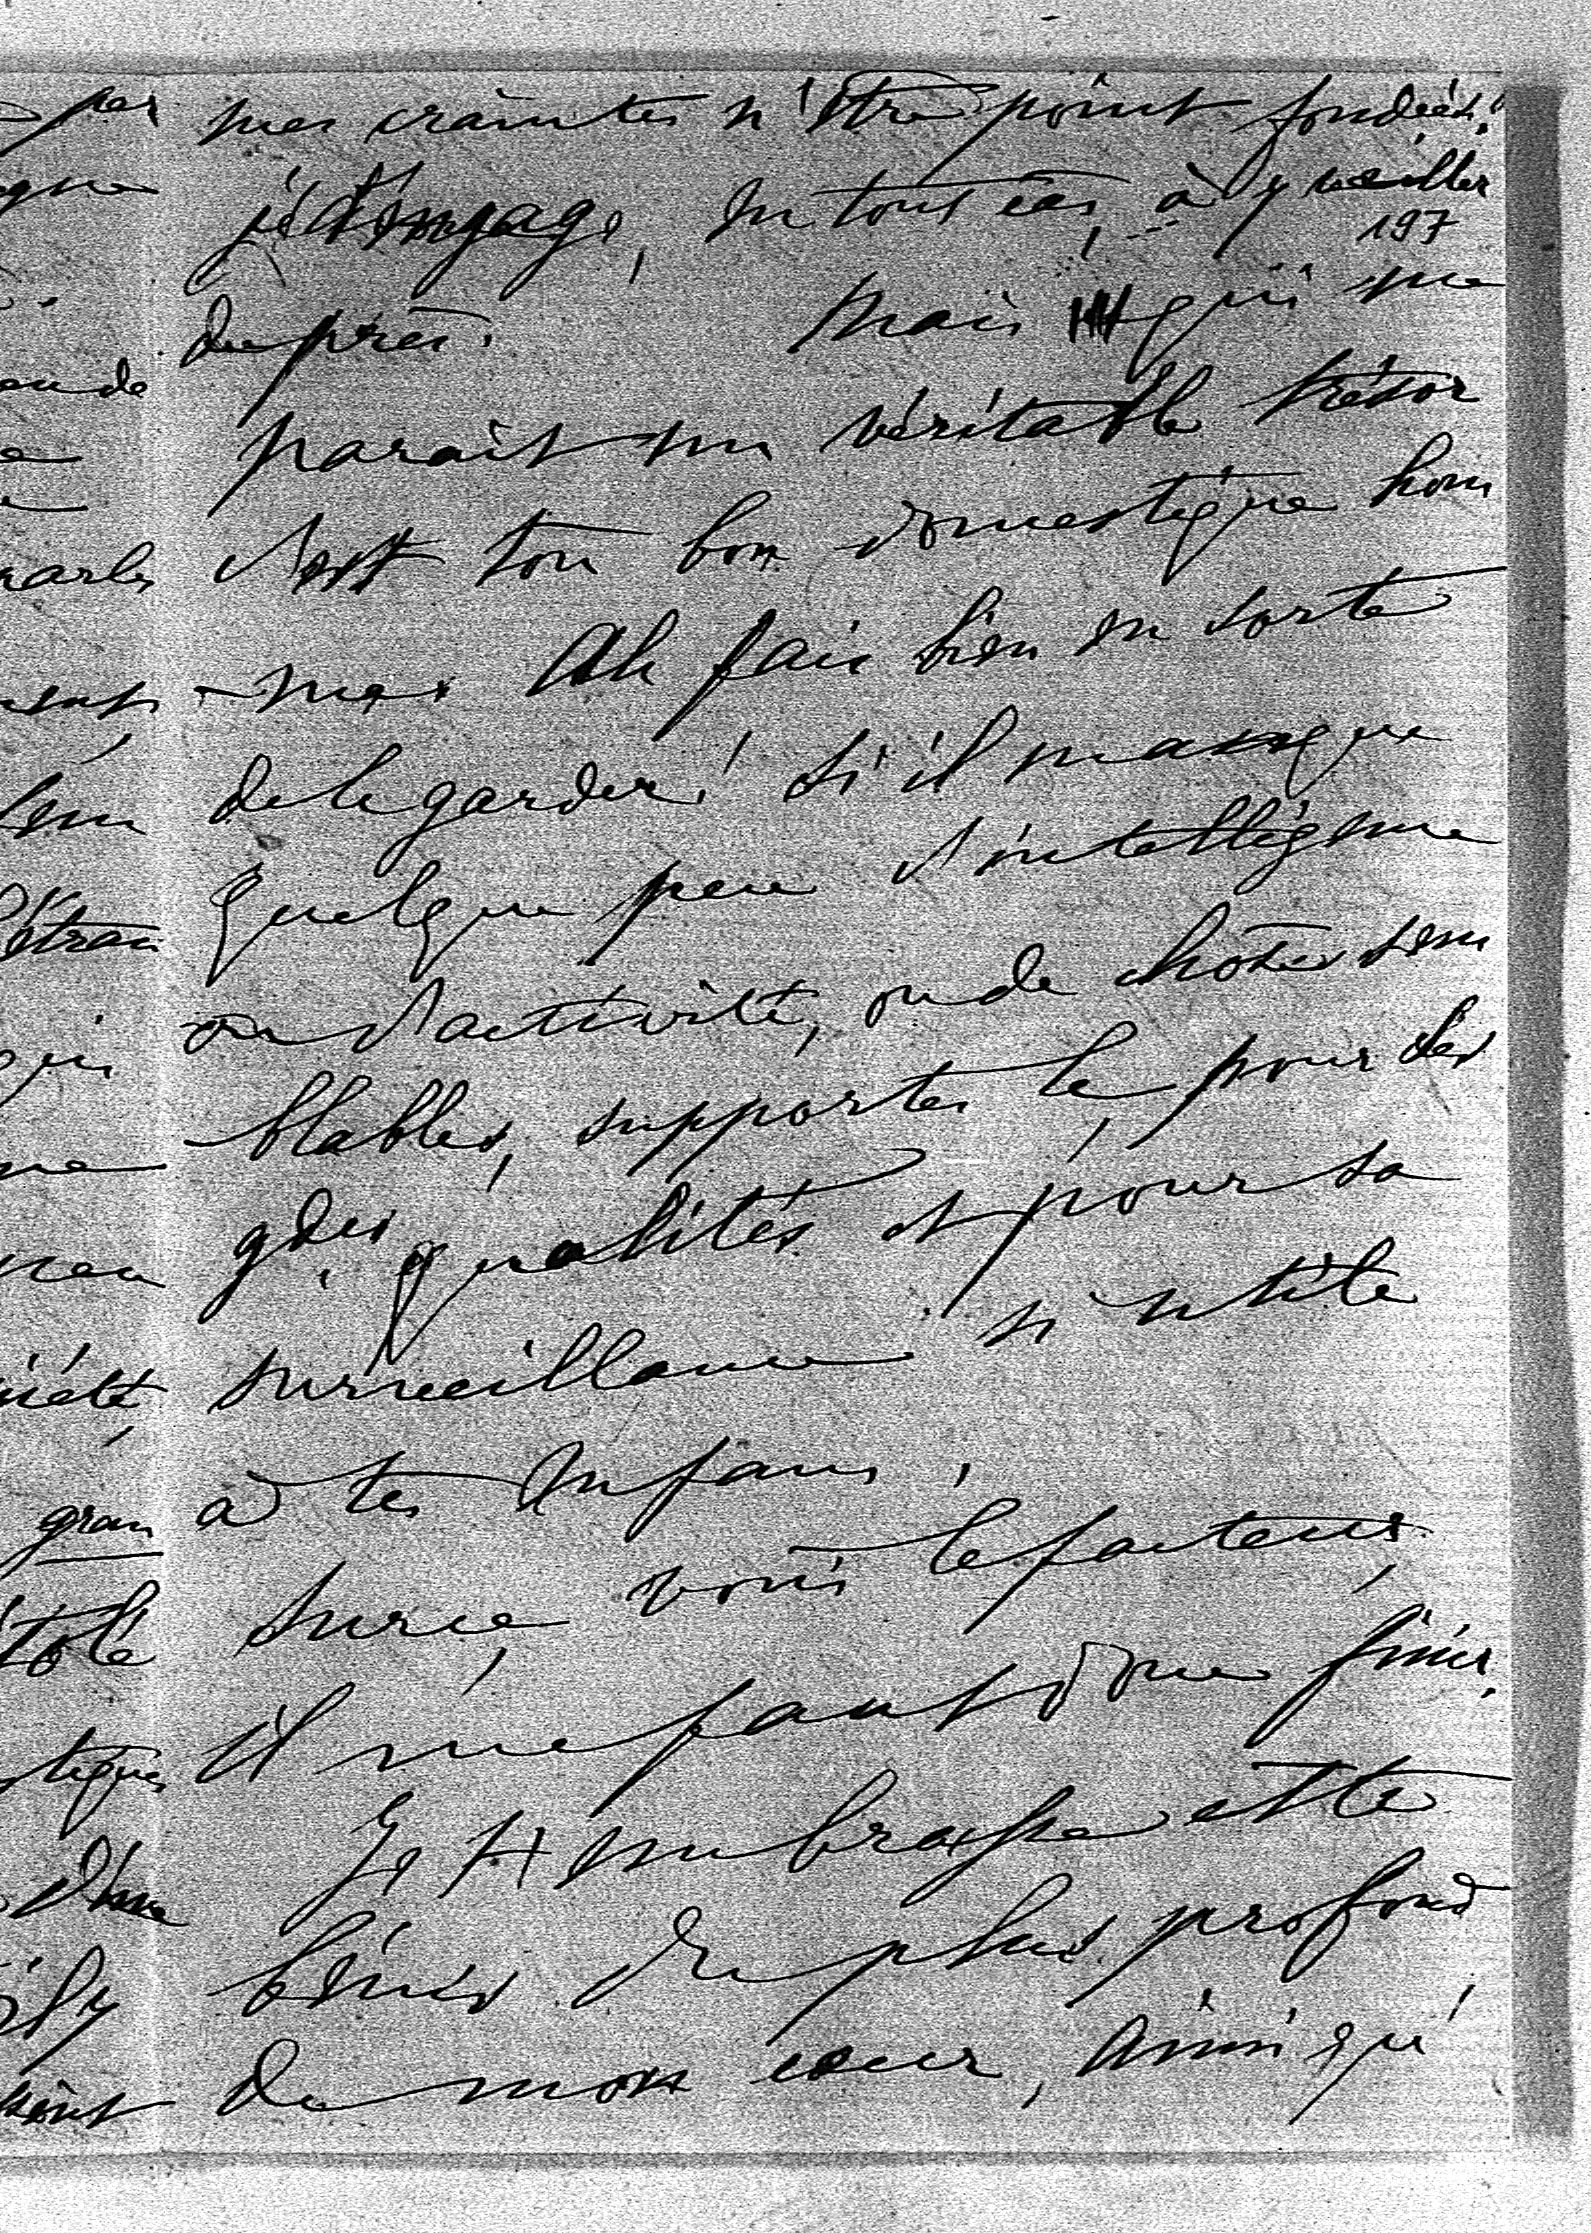 mes craintes n'être point fondées!
je t'engage, en tous cas, à y veiller
197
de près. Mais qui me
parait un véritable trésor
c'est ton bon domestique hom
-mes Ah fais bien en sorte
de le garder! Si il manque
quelque peu d'intelligence
ou d'activité, ou de choses sem
-blables, supportes le, pour ses
gdes qualités et pour sa
surveillance si utile
à tes enfans,
voici le facteur,
il me faut donc finir.
Je t'embrasse et te
bénis du plus profond
de mon cœur, ainsi que